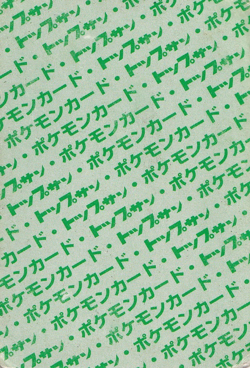 ポケモンカード・
トップサン・トップサン・
ポケモンカード・ポケモンカード
トップサン・トップサン・トップサン
ポケモンカード・ポケモンカード・
トップサン・トップサン・トップサン
ポケモンカード・ポケモンカード・
トップサン・トップサン・トップサン
ポケモンカード・ポケモンカード・
トップサン・トップサン・トップサン
ポケモンカード・ポケモンカード
トップサン・トップサン
・ポケモンカード